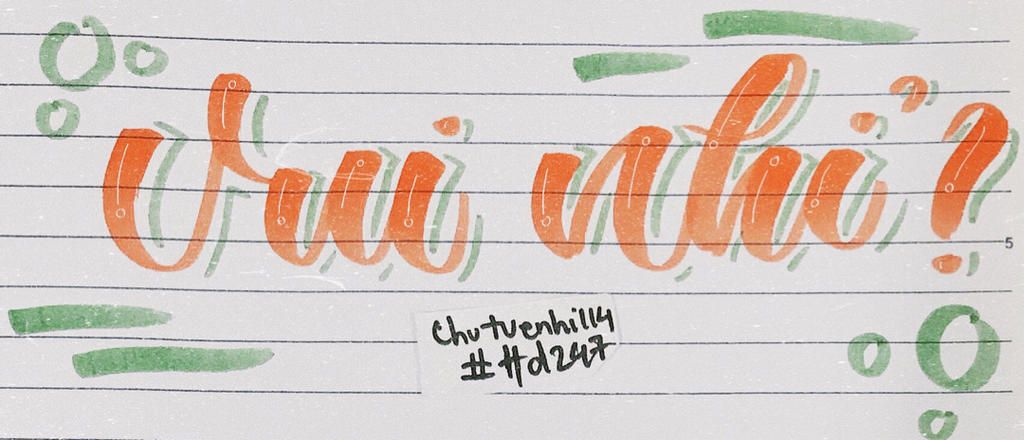 Vui nhỉ?
5
chutuenhi114
##d247